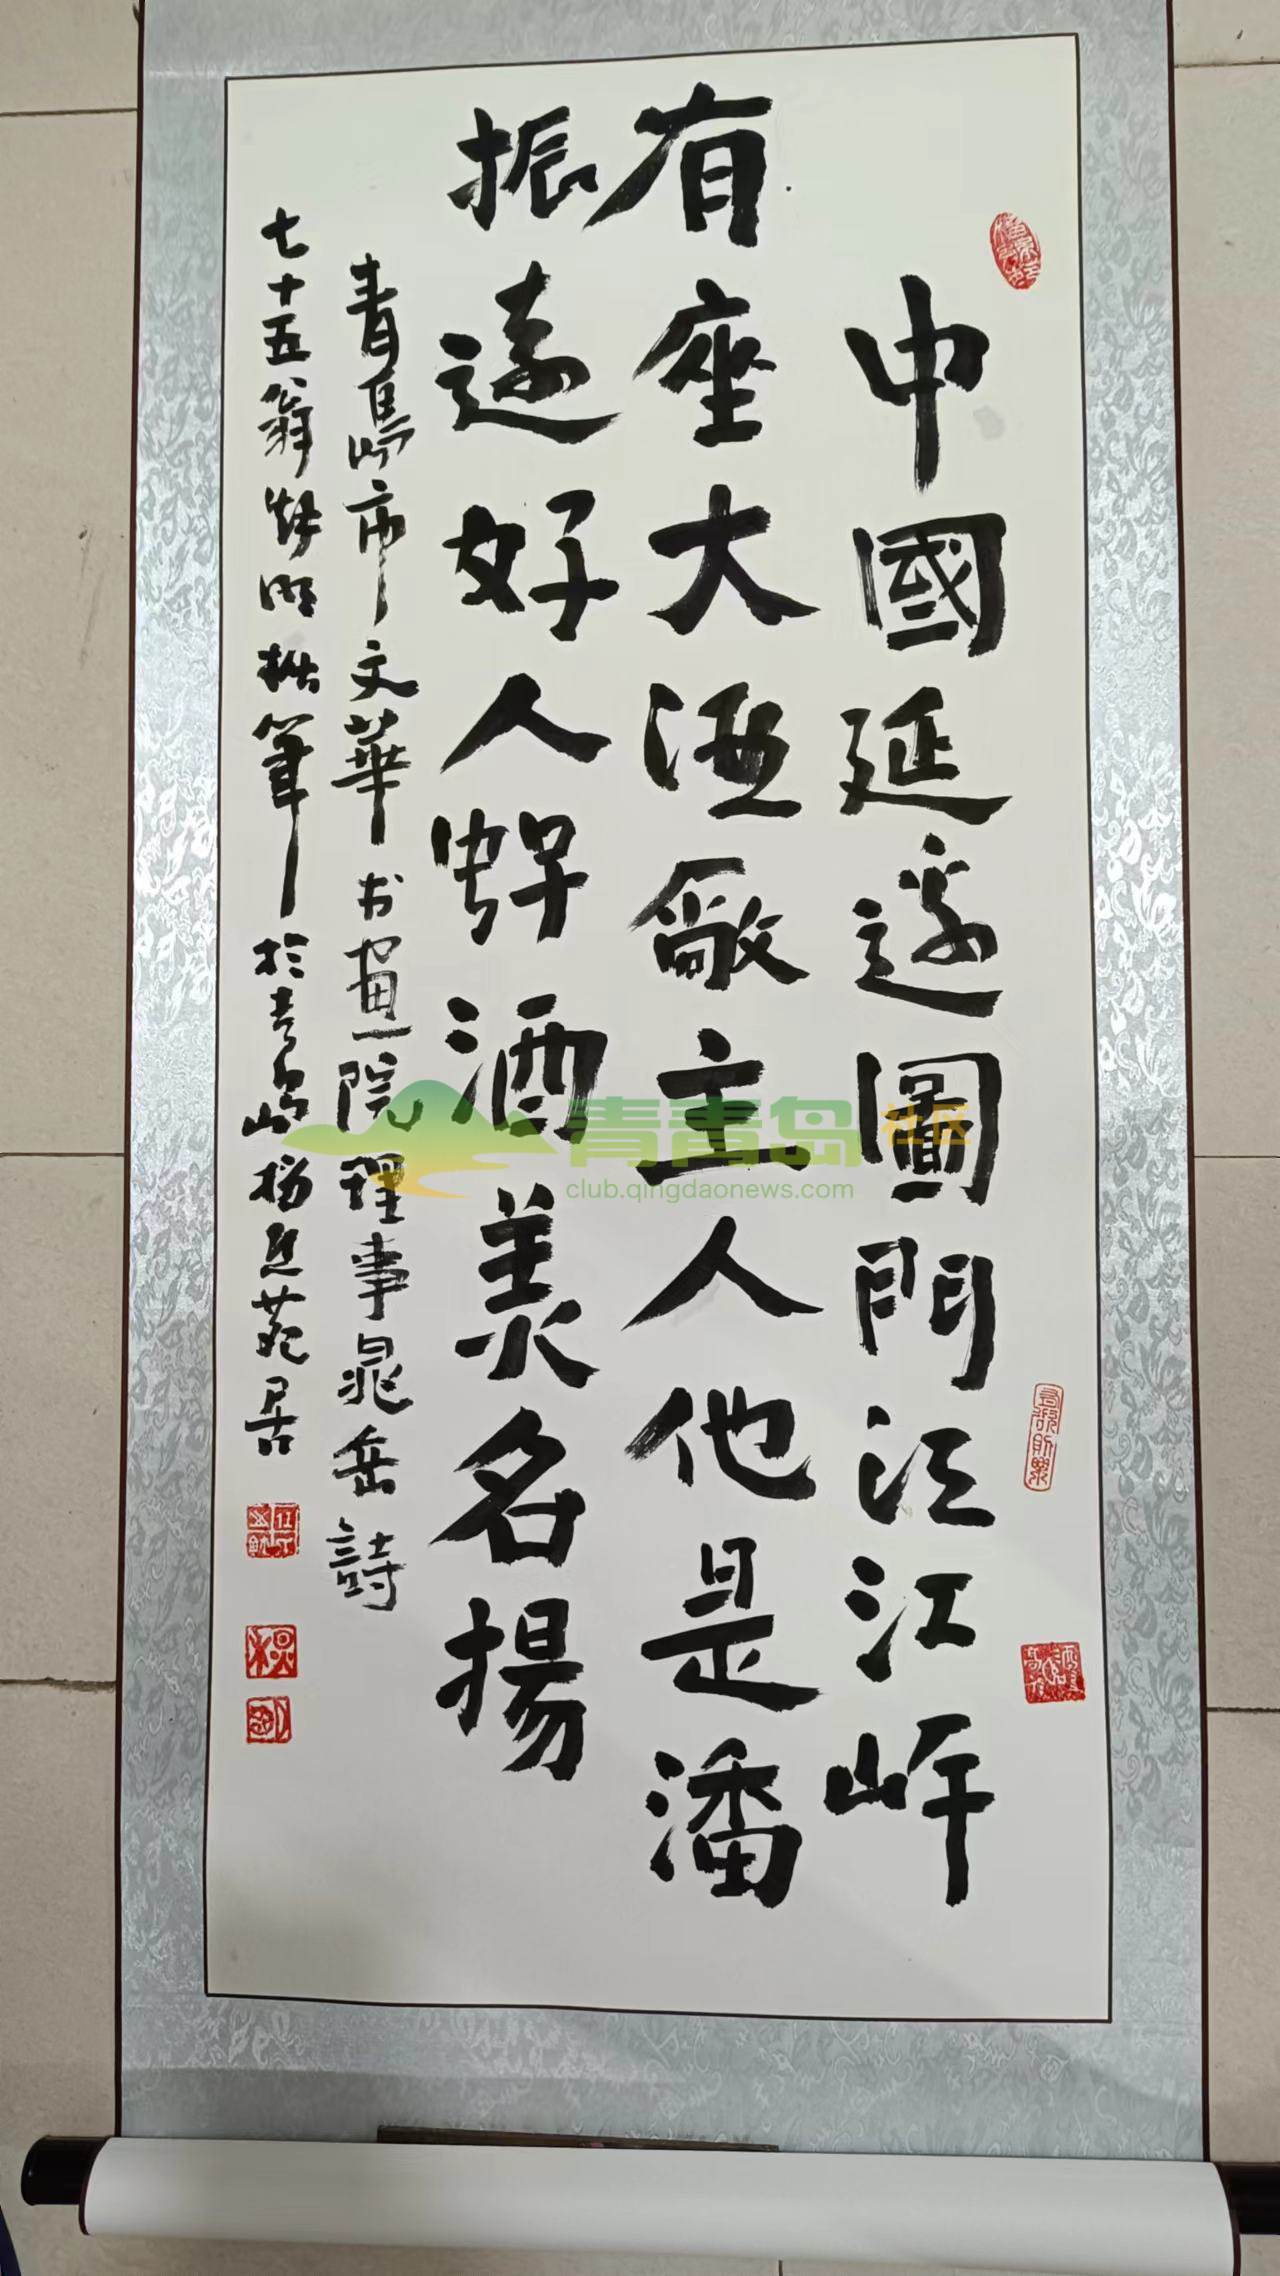 中國延邊圖門江江岸
有座大酒廠主人他是潘
振遠好人好酒美名揚
青島市文華书畫院理事晁岳詩
七十五翁 明拙筆於青島楊 苑居
青青岛社区
club.qingdaonews.com